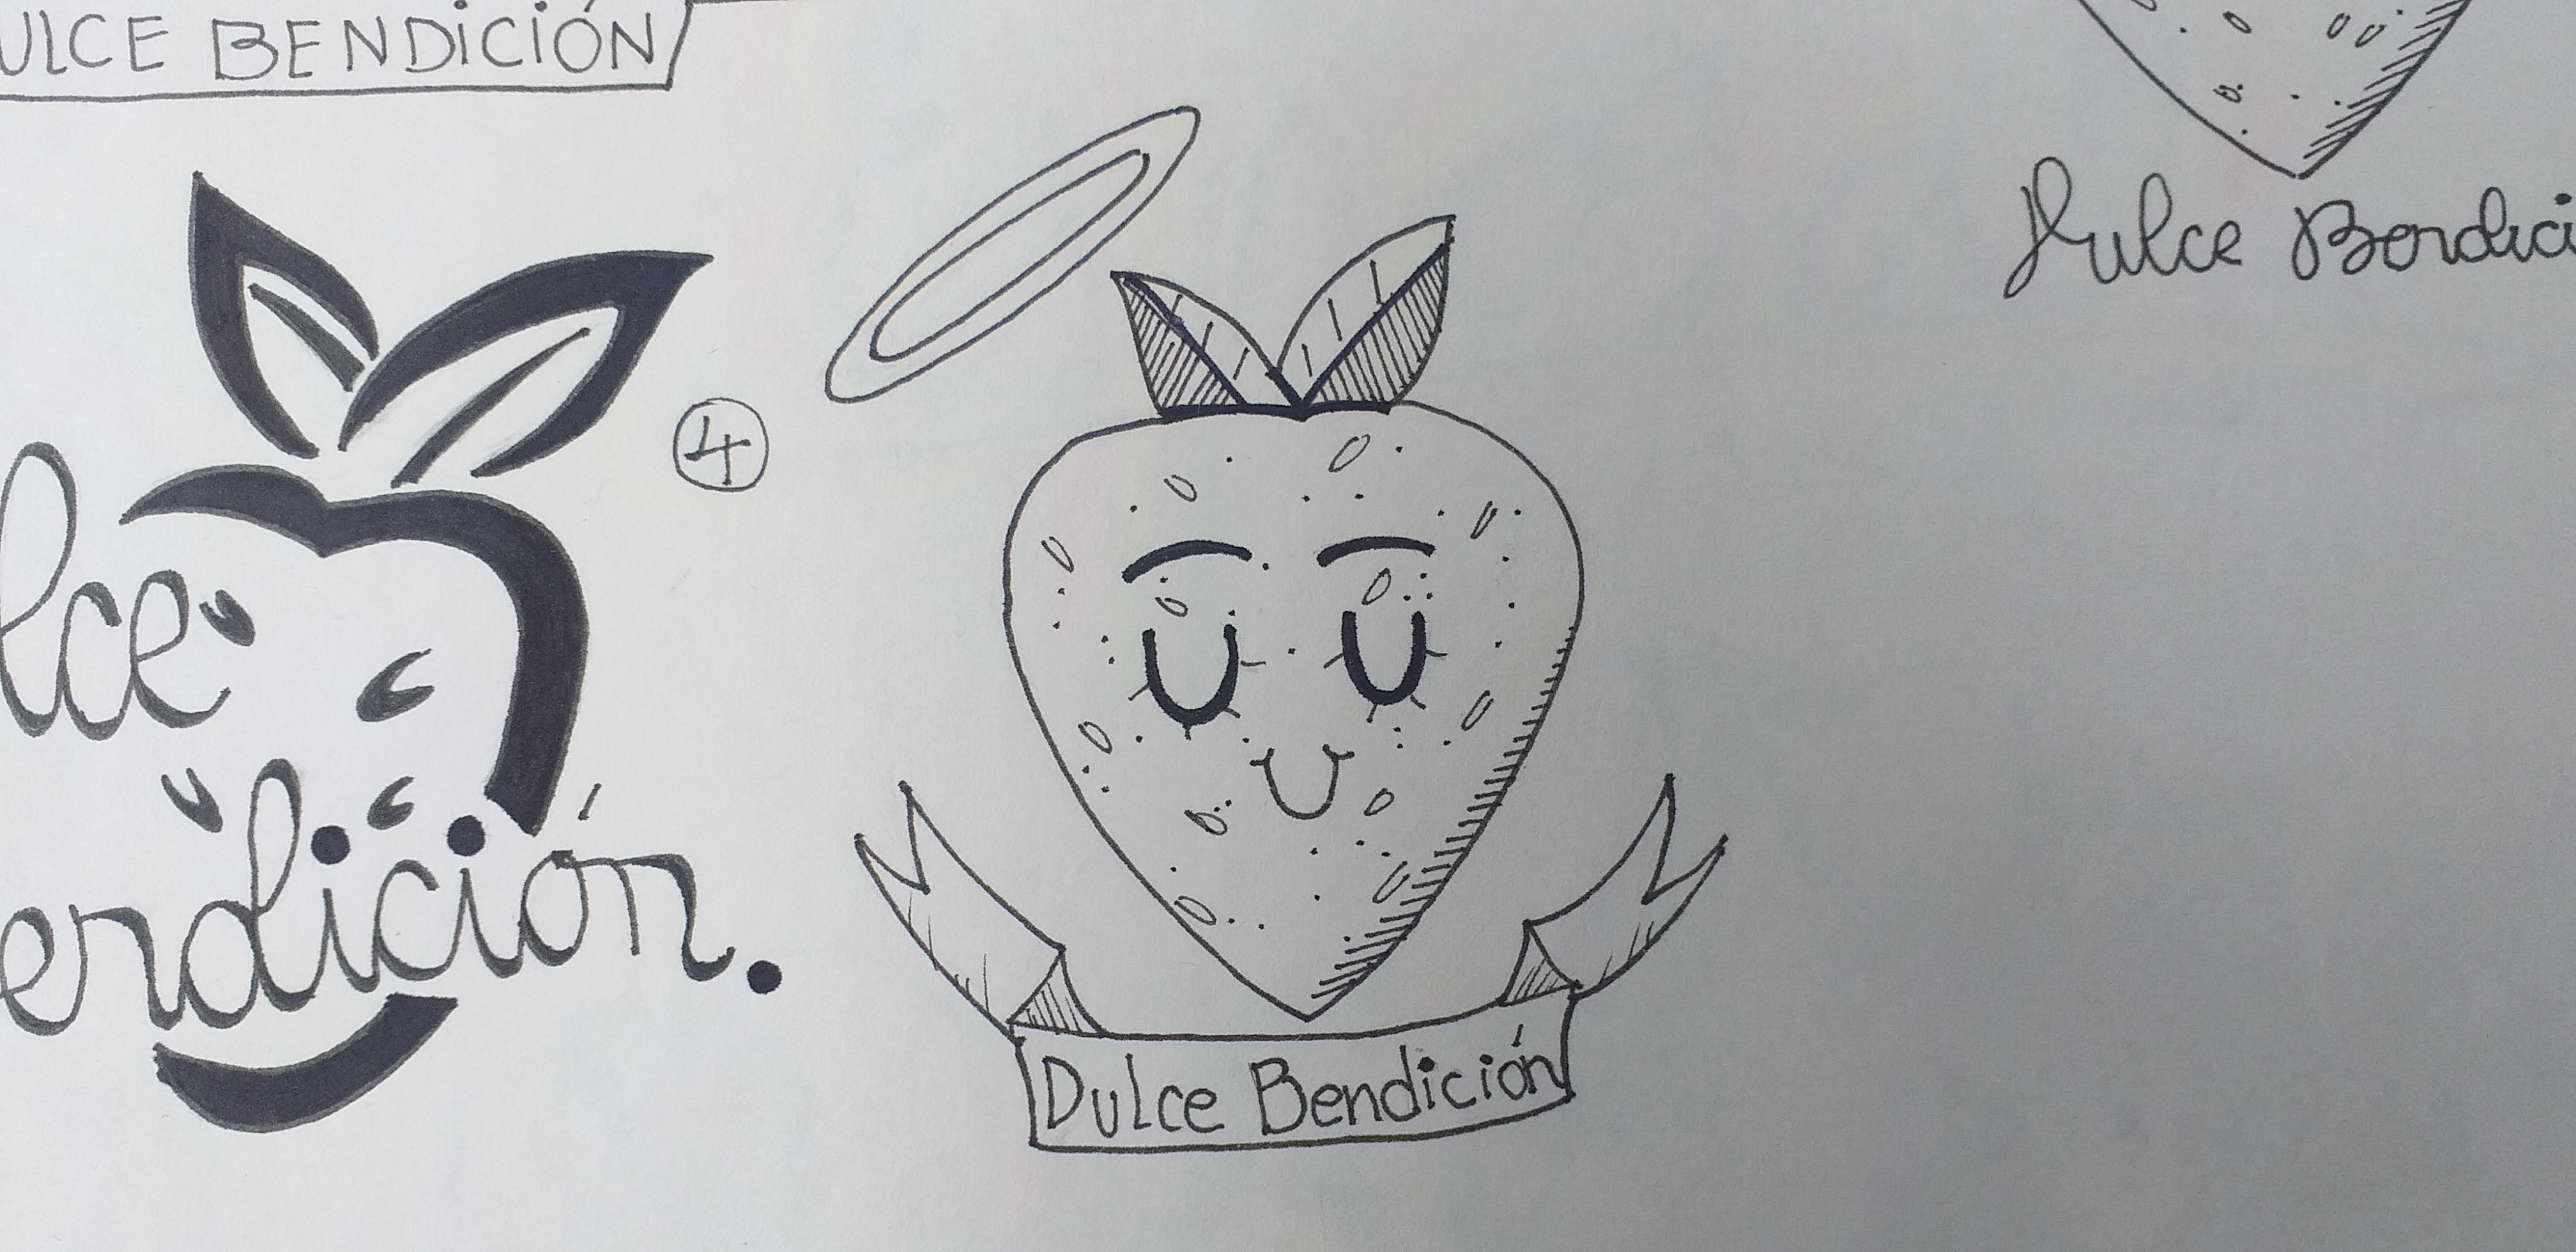 ULCE BENDiCiÓN
Dulce Bendici
4
lce
endición.
Dulce Bendición